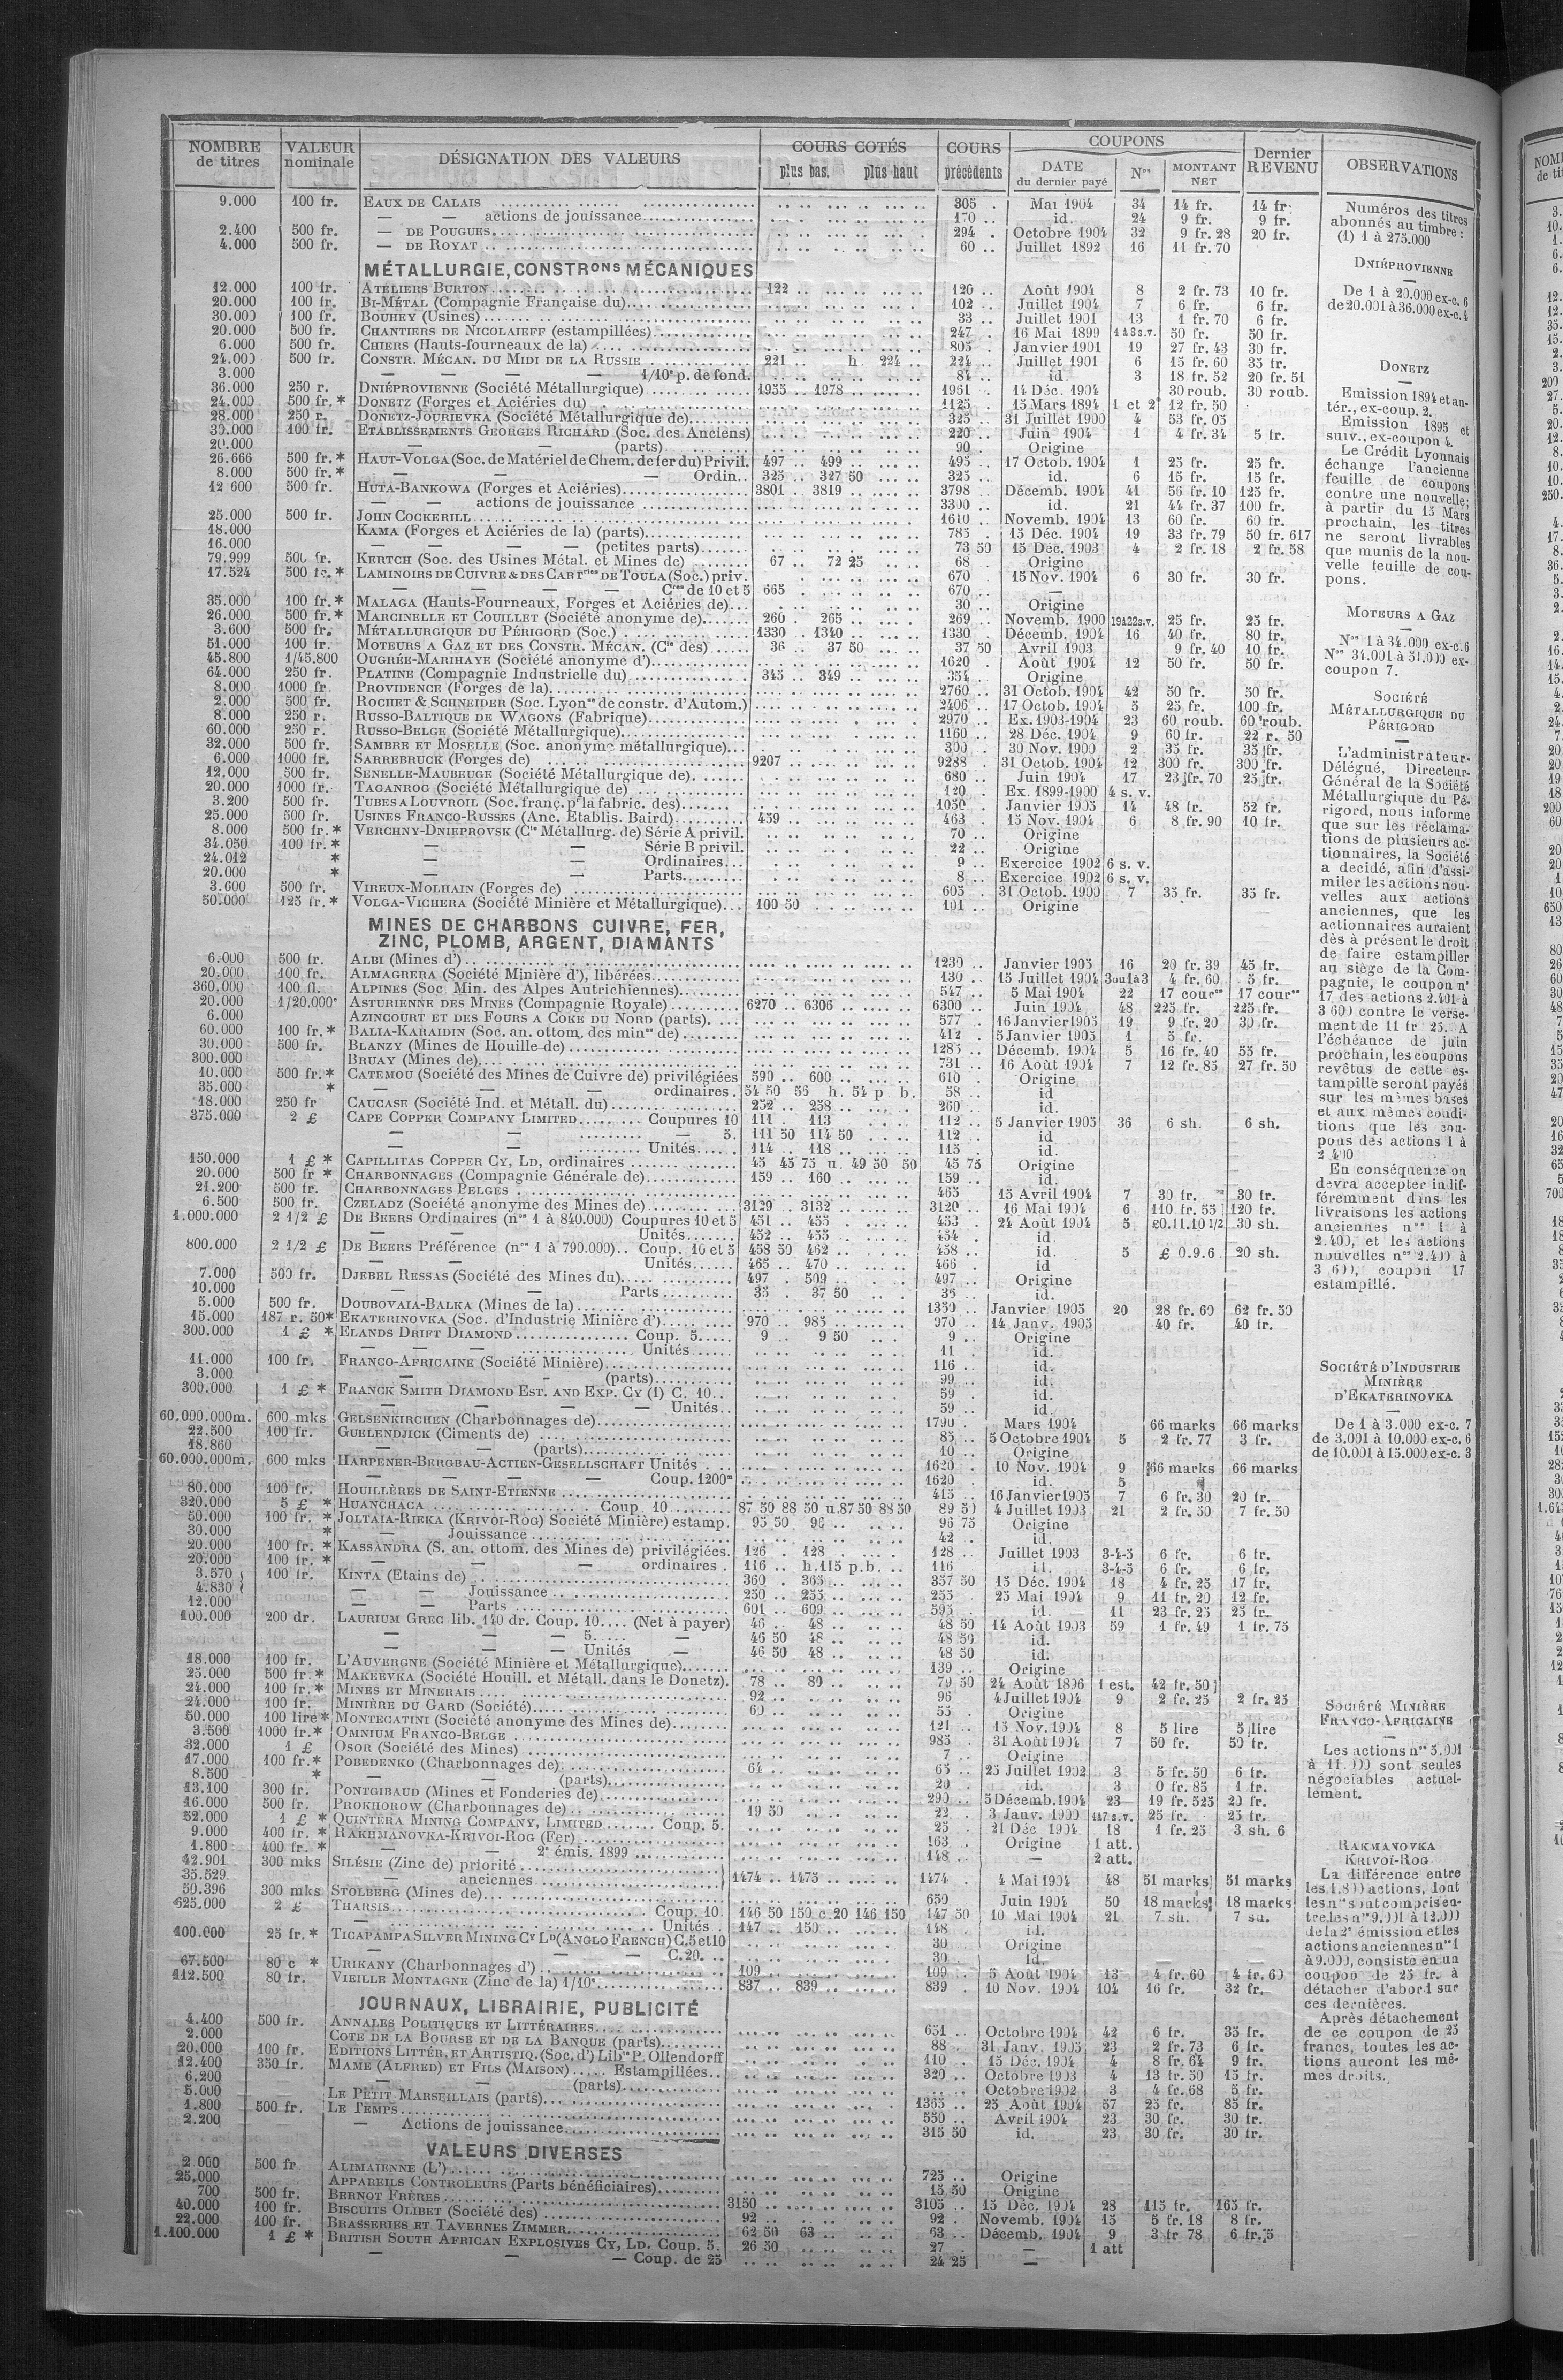 NOMBRE de titres | VALEUR nominale | DÉSIGNATION DES VALEURS | COURS COTÉS plus bas. plus haut | COURS précédents | COUPONS DATE du dernier payé | Nos | MONTANT NET | Dernier REVENU | OBSERVATIONS
9.000 100 fr. EAUX DE CALAIS 305 . Mai 1904 34 14 fr. 14 fr.
— — actions de jouissance 170 .. id. 24 9 fr. 9 fr.
2.400 500 fr. — DE POUGUES 294 . Octobre 1904 32 9 fr. 28 20 fr.
4.000 500 fr. — DE ROYAT 60 .. Juillet 1892 16 11 fr. 70
MÉTALLURGIE, CONSTRons MÉCANIQUES
12.000 100 fr. ATELIERS BURTON 122 .. 120 .. Août 1904 8 2 fr. 73 10 fr.
20.000 100 fr. BI-MÉTAL (Compagnie Française du) 102 .. Juillet 1904 7 6 fr. 6 fr.
30.000 100 fr. BOUHEY (Usines) 33 .. Juillet 1901 13 1 fr. 70 6 fr.
20.000 500 fr. CHANTIERS DE NICOLAIEFF (estampillées) 247 16 Mai 1899 1 à 3 s.v. 50 fr. 50 fr.
6.000 500 fr. CHIERS (Hauts-fourneaux de la) 805 . Janvier 1901 19 27 fr. 43 30 fr.
24.000 500 fr. CONSTR. MÉCAN. DU MIDI DE LA RUSSIE 221 .. h 224 .. 224 .. Juillet 1901 6 15 fr. 60 35 fr.
3.000 — — — — 1/10e p. de fond. 84 .. id. 3 18 fr. 52 20 fr. 51
36.000 250 r. DNIÉPROVIENNE (Société Métallurgique) 1955 .. 1978 1961 . 14 Déc. 1904 30 roub. 30 roub.
24.000 500 fr. * DONETZ (Forges et Aciéries du) 1125 . 15 Mars 1894 1 et 2 12 fr. 50
28.000 250 r. DONETZ-JOURIEVKA (Société Métallurgique de) 325 .. 31 Juillet 1900 4 53 fr. 05
30.000 100 fr. ETABLISSEMENTS GEORGES RICHARD (Soc. des Anciens) 220 .. Juin 1904 1 4 fr. 34 5 fr.
20.000 — — (parts) 90 . Origine
26.666 500 fr. * HAUT-VOLGA (Soc. de Matériel de Chem. de fer du) Privil. 497 .. 499 .. 495 .. 17 Octob. 1904 1 25 fr. 25 fr.
8.000 500 fr. * — — — Ordin. 325 .. 327 50 325 .. id. 6 15 fr. 15 fr.
12 600 500 fr. HUTA-BANKOWA (Forges et Aciéries) 3801 . 3819 .. 3798 .. Décemb. 1904 41 56 fr. 10 125 fr.
— actions de jouissance 3300 .. id. 21 44 fr. 37 100 fr.
25.000 500 fr. JOHN COCKERILL 1610 .. Novemb. 1904 13 60 fr. 60 fr.
18.000 KAMA (Forges et Aciéries de la) (parts) 785 . 15 Déc. 1904 19 33 fr. 79 50 fr. 617
16.000 — — — — (petites parts) 73 50 15 Déc. 1903 4 2 fr. 18 2 fr. 58
79.999 500 fr. KERTCH (Soc. des Usines Métal. et Mines de) 67 .. 72 25 68 . Origine
17.524 500 fr. * LAMINOIRS DE CUIVRE & DES CARTries DE TOULA (Soc.) priv. 670 . 15 Nov. 1904 6 30 fr. 30 fr.
— — — — Cres de 10 et 5 665 670 .. —
35.000 100 fr. * MALAGA (Hauts-Fourneaux, Forges et Aciéries de) 30 .. Origine
26.000 500 fr. * MARCINELLE ET COUILLET (Société anonyme de) 260 . 265 .. 269 .. Novemb. 1900 19 à 22 s.v. 25 fr. 25 fr.
3.600 500 fr. MÉTALLURGIQUE DU PÉRIGORD (Soc.) 1330 .. 1340 .. 1330 . Décemb. 1904 16 40 fr. 80 fr.
51.000 100 fr. MOTEURS A GAZ ET DES CONSTR. MÉCAN. (Cie des) 36 .. 37 50 37 50 Avril 1903 9 fr. 40 10 fr.
45.800 1/45.800 OUGRÉE-MARIHAYE (Société anonyme d') 1620 . Août 1904 12 50 fr. 50 fr.
64.000 250 fr. PLATINE (Compagnie Industrielle du) 345 .. 349 .. 354 . Origine
8.000 1000 fr. PROVIDENCE (Forges de la) 2760 .. 31 Octob. 1904 42 50 fr. 50 fr.
2.000 500 fr. ROCHET & SCHNEIDER (Soc. Lyonse de constr. d'Autom.) 2406 .. 17 Octob. 1904 5 25 fr. 100 fr.
8.000 250 r. RUSSO-BALTIQUE DE WAGONS (Fabrique) 2970 .. Ex. 1903-1904 23 60 roub. 60 roub.
60.000 250 r. RUSSO-BELGE (Société Métallurgique) 1160 .. 28 Déc. 1904 9 60 fr. 22 r. 50
32.000 500 fr. SAMBRE ET MOSELLE (Soc. anonyme métallurgique) 300 .. 30 Nov. 1900 2 35 fr. 35 fr.
6.000 1000 fr. SARREBRUCK (Forges de) 9207 9288 . 31 Octob. 1904 12 300 fr. 300 fr.
12.000 500 fr. SENELLE-MAUBEUGE (Société Métallurgique de) 680 .. Juin 1904 17 23 fr. 70 25 fr.
20.000 1000 fr. TAGANROG (Société Métallurgique de) 120 .. Ex. 1899-1900 4 s. v.
3.200 500 fr. TUBES A LOUVROIL (Soc. franç. pr la fabric. des) 1050 . Janvier 1905 14 48 fr. 52 fr.
25.000 500 fr. USINES FRANCO-RUSSES (Anc. Etablis. Baird) 459 .. 463 . 15 Nov. 1904 6 8 fr. 90 10 fr.
8.000 500 fr. * VERCHNY-DNIEPROVSK (Cie Métallurg. de) Série A privil. 70 .. Origine
34.050 100 fr. * — — Série B privil. 22 .. Origine
24.012 * — — Ordinaires 9 .. Exercice 1902 6 s. v.
20.000 * — — Parts 8 .. Exercice 1902 6 s. v.
3.600 500 fr. VIREUX-MOLHAIN (Forges de) 605 . 31 Octob. 1900 7 35 fr. 35 fr.
50.000 125 fr. * VOLGA-VICHERA (Société Minière et Métallurgique) 100 50 101 .. Origine
MINES DE CHARBONS CUIVRE, FER,
ZINC, PLOMB, ARGENT, DIAMANTS
6.000 500 fr. ALBI (Mines d') 1230 .. Janvier 1905 16 20 fr. 39 45 fr.
20.000 100 fr. ALMAGRERA (Société Minière d'), libérées 130 . 15 Juillet 1904 3 ou 1 à 3 4 fr. 60 5 fr.
360.000 100 fl. ALPINES (Soc. Min. des Alpes Autrichiennes) 547 .. 5 Mai 1904 22 17 cour. 17 cour.
20.000 1/20.000e ASTURIENNE DES MINES (Compagnie Royale) 6270 .. 6306 6300 .. Juin 1904 48 225 fr. 225 fr.
6.000 AZINCOURT ET DES FOURS A COKE DU NORD (parts) 577 . 16 Janvier 1905 19 9 fr. 20 30 fr.
60.000 100 fr. * BALIA-KARAIDIN (Soc. an. ottom. des mines de) 412 . 5 Janvier 1905 1 5 fr.
30.000 500 fr. BLANZY (Mines de Houille de) 1285 .. Décemb. 1904 5 16 fr. 40 55 fr.
300.000 BRUAY (Mines de) 731 .. 16 Août 1904 7 12 fr. 85 27 fr. 50
10.000 500 fr. * CATEMOU (Société des Mines de Cuivre de) privilégiées 590 .. 600 .. 610 . Origine
35.000 * — — — ordinaires. 54 50 55 h. 54 p b. 58 .. id
18.000 250 fr CAUCASE (Société Ind. et Métall. du) 252 .. 258 .. 260 .. id.
375.000 2 £ CAPE COPPER COMPANY LIMITED Coupures 10 111 . 113 112 .. 5 Janvier 1905 36 6 sh. 6 sh.
— — — 5. 111 50 114 50 112 .. id
— — Unités 114 .. 118 .. 115 . id.
150.000 1 £ * CAPILLITAS COPPER CY, LD, ordinaires 45 45 75 u. 49 50 50 45 75 Origine
20.000 500 fr * CHARBONNAGES (Compagnie Générale de) 159 .. 160 .. 159 .. id.
21.200 500 fr. CHARBONNAGES BELGES 465 15 Avril 1904 7 30 fr. 30 fr.
6.500 500 fr. CZELADZ (Société anonyme des Mines de) 3129 .. 3132 3120 .. 16 Mai 1904 6 110 fr. 55 120 fr.
1.000.000 2 1/2 £ DE BEERS Ordinaires (nos 1 à 840.000) Coupures 10 et 5 451 .. 455 453 . 24 Août 1904 5 £0.11.10 1/2 30 sh.
— — Unités 452 .. 455 454 . id
800.000 2 1/2 £ DE BEERS Préférence (nos 1 à 790.000) Coup. 10 et 5 458 50 462 458 .. id. 5 £ 0.9.6 20 sh.
— — Unités 465 .. 470 466 . id
7.000 500 fr. DJEBEL RESSAS (Société des Mines du) 497 . 509 497 .. Origine
10.000 — — Parts 35 . 37 50 35 .. id.
5.000 500 fr. DOUBOVAIA-BALKA (Mines de la) 1350 .. Janvier 1905 20 28 fr. 60 62 fr. 50
15.000 187 r. 50* EKATERINOVKA (Soc. d'Industrie Minière d') 970 .. 985 970 .. 14 Janv. 1905 40 fr. 40 fr.
300.000 1 £ * ELANDS DRIFT DIAMOND Coup. 5 9 .. 9 50 9 .. Origine
— — — Unités 11 id.
11.000 100 fr. FRANCO-AFRICAINE (Société Minière) 116 .. id.
3.000 — - (parts) 99 .. id.
300.000 1 £ * FRANCK SMITH DIAMOND EST. AND EXP. CY (1) C. 10 59 . id.
— — — — Unités 59 .. id.
60.000.000m. 600 mks GELSENKIRCHEN (Charbonnages de) 1790 . Mars 1904 66 marks 66 marks
22.500 100 fr. GUELENDJICK (Ciments de) 85 .. 5 Octobre 1904 5 2 fr. 77 3 fr.
18.860 — — (parts) 10 .. Origine
60.000.000m. 600 mks HARPENER-BERGBAU-ACTIEN-GESELLSCHAFT Unités 1620 .. 10 Nov. 1904 9 66 marks 66 marks
— — — — Coup. 1200m 1620 .. id. 5
80.000 100 fr. HOUILLÈRES DE SAINT-ETIENNE 415 .. 16 Janvier 1905 7 6 fr. 30 20 fr.
320.000 5 £ * HUANCHACA Coup 10 87 50 88 50 u. 87 50 88 50 89 50 4 Juillet 1903 21 2 fr. 50 7 fr. 50
50.000 100 fr. * JOLTAIA-RIEKA (KRIVOI-ROG) Société Minière) estamp. 95 50 96 .. 96 75 Origine
30.000 * — Jouissance 42 . id.
20.000 100 fr. * KASSANDRA (S. an. ottom. des Mines de) privilégiées. 126 . 128 128 .. Juillet 1903 3-4-5 6 fr. 6 fr.
20.000 100 fr. * — — — ordinaires . 116 .. h. 115 p.b. 116 id. 3-4-5 6 fr. 6 fr.
3.570 100 fr. KINTA (Etains de) 360 . 365 .. 357 50 15 Déc. 1904 18 4 fr. 25 17 fr.
4.830 — — Jouissance 250 .. 255 .. 255 .. 25 Mai 1904 9 11 fr. 20 12 fr.
12.000 — — Parts 601 .. 609 .. 595 .. id. 11 23 fr. 25 25 fr.
100.000 200 dr. LAURIUM GREC lib. 140 dr. Coup. 10 (Net à payer) 46 .. 48 .. 48 50 14 Août 1903 59 1 fr. 49 1 fr. 75
— — — 5. — 46 50 48 .. 48 50 id.
— — — Unités — 46 50 48 .. 48 50 id.
18.000 100 fr. L'AUVERGNE (Société Minière et Métallurgique) 139 .. Origine
25.000 500 fr. * MAKEEVKA (Société Houill. et Métall. dans le Donetz). 78 .. 80 .. 79 50 24 Août 1896 1 est. 42 fr. 50
24.000 100 fr. * MINES ET MINERAIS 92 .. 96 4 Juillet 1904 9 2 fr. 25 2 fr. 25
24.000 100 fr. MINIÈRE DU GARD (Société) 60 .. 55 . Origine
50.000 100 lire* MONTECATINI (Société anonyme des Mines de) 121 .. 15 Nov. 1904 8 5 lire 5 lire
3.500 1000 fr. * OMNIUM FRANCO-BELGE 985 . 31 Août 1904 7 50 fr. 50 fr.
32.000 1 £ OSOR (Société des Mines) 7 .. Origine
17.000 100 fr. * POBEDENKO (Charbonnages de) 64 .. 65 .. 25 Juillet 1902 3 5 fr. 50 6 fr.
8.500 * — — (parts) 20 . id. 3 0 fr. 85 1 fr.
13.100 300 fr. PONTGIBAUD (Mines et Fonderies de) 290 .. 5 Décemb. 1904 23 19 fr. 525 20 fr.
16.000 500 fr. PROKHOROW (Charbonnages de) 19 50 22 . 3 Janv. 1900 1 à 7 s.v. 25 fr. 25 fr.
52.000 1 £ * QUINTERA MINING COMPANY, LIMITED Coup. 5. 25 . 21 Déc 1904 18 1 fr. 25 3 sh. 6
9.000 400 fr. * RAKHMANOVKA-KRIVOI-ROG (Fer) 163 . Origine 1 att.
1.800 400 fr. * — — 2e émis. 1899 148 .. — 2 att.
42.901 300 mks SILÉSIE (Zinc de) priorité
35.529 — anciennes 1474 .. 1475 .. 1474 . 4 Mai 1904 48 51 marks 51 marks
50.396 300 mks STOLBERG (Mines de) 650 Juin 1904 50 18 marks 18 marks
625.000 2 £ THARSIS Coup. 10. 146 50 150 c. 20 146 150 147 50 10 Mai 1904 21 7 sh. 7 sh.
— Unités . 147 .. 150 .. 148 id.
100.000 25 fr. * TICAPAMPA SILVER MINING CY LD (ANGLO FRENCH) C. 5 et 10 30 . Origine
— — — C. 20. 30 . id.
67.500 80 c * URIKANY (Charbonnages d') 109 109 . 5 Août 1904 13 4 fr. 60 4 fr. 60
112.500 80 fr. VIEILLE MONTAGNE (Zinc de la) 1/10e 837 .. 839 839 . 10 Nov. 1904 104 16 fr. 32 fr.
JOURNAUX, LIBRAIRIE, PUBLICITÉ
4.400 500 fr. ANNALES POLITIQUES ET LITTÉRAIRES 651 .. Octobre 1904 42 6 fr. 35 fr.
2.000 COTE DE LA BOURSE ET DE LA BANQUE (parts) 88 .. 31 Janv. 1905 23 2 fr. 73 6 fr.
20.000 100 fr. EDITIONS LITTÉR. ET ARTISTIQ. (Soc. d') Libie P. Ollendorff 110 . 15 Déc. 1904 4 8 fr. 64 9 fr.
12.400 350 fr. MAME (ALFRED) ET FILS (MAISON) Estampillées 320 .. Octobre 1903 4 13 fr. 50 15 fr.
6.200 — — (parts) Octobre 1902 3 4 fr. 68 5 fr.
5.000 LE PETIT MARSEILLAIS (parts) 1365 .. 25 Août 1904 57 25 fr. 85 fr.
1.800 500 fr. LE TEMPS 550 .. Avril 1904 23 30 fr. 30 fr.
2.200 — Actions de jouissance 315 50 id. 23 30 fr. 30 fr.
VALEURS DIVERSES
2.000 500 fr ALIMAIENNE (L') 725 .. Origine
25.000 APPAREILS CONTROLEURS (Parts bénéficiaires) 15 50 Origine
700 500 fr. BERNOT FRÈRES 3150 3105 .. 15 Déc. 1904 28 115 fr. 165 fr.
40.000 100 fr. BISCUITS OLIBET (Société des) 92 .. 92 .. Novemb. 1904 15 5 fr. 18 8 fr.
22.000 100 fr. BRASSERIES ET TAVERNES ZIMMER 62 50 63 63 .. Décemb. 1904 9 3 fr 78 6 fr. 5
1.100.000 1 £ * BRITISH SOUTH AFRICAN EXPLOSIVES CY, LD. Coup. 5. 26 50 27 . — 1 att
— — — Coup. de 25 24 25 —
Numéros des titres
abonnés au timbre :
(1) 1 à 275.000
DNIÉPROVIENNE
De 1 à 20.000 ex-c. 6
de 20.001 à 36.000 ex-c. 4
DONETZ
Emission 1894 et an-
tér., ex-coup. 2.
Emission 1895 et
suiv., ex-coupon 4.
Le Crédit Lyonnais
échange l'ancienne
feuille de coupons
contre une nouvelle;
à partir du 15 Mars
prochain, les titres
ne seront livrables
que munis de la nou-
velle feuille de cou-
pons.
MOTEURS A GAZ
Nos 1 à 34.000 ex-c. 6
Nos 34.001 à 51.000 ex-
coupon 7.
SOCIÉTÉ
MÉTALLURGIQUE DU
PÉRIGORD
L'administrateur-
Délégué, Directeur-
Général de la Société
Métallurgique du Pé-
rigord, nous informe
que sur les réclama-
tions de plusieurs ac-
tionnaires, la Société
a decidé, afin d'assi-
miler les actions nou-
velles aux actions
anciennes, que les
actionnaires auraient
dès à présent le droit
de faire estampiller
au siège de la Com-
pagnie, le coupon n°
17 des actions 2.401 à
3 600 contre le verse-
ment de 11 fr 25. A
l'échéance de juin
prochain, les coupons
revêtus de cette es-
tampille seront payés
sur les mêmes bases
et aux mêmes condi-
tions que les cou-
pons des actions 1 à
2 400
En conséquence on
devra accepter indif-
féremment dans les
livraisons les actions
anciennes nos 1 à
2.400, et les actions
nouvelles nos 2.400 à
3 600, coupon 17
estampillé.
SOCIÉTÉ D'INDUSTRIE
MINIÈRE
D'EKATERINOVKA
De 1 à 3.000 ex-c. 7
de 3.001 à 10.000 ex-c. 6
de 10.001 à 15.000 ex-c. 3
SOCIÉTÉ MINIÈRE
FRANCO-AFRICAINE
Les actions nos 5.001
à 11.000 sont seules
négociables actuel-
lement.
RAKMANOVKA
KRIVOI-ROG
La différence entre
les 1.800 actions, dont
les nos sont compris en-
tre les nos 9.001 à 12.000
de la 2e émission et les
actions anciennes nos 1
à 9.000, consiste en un
coupon de 25 fr. à
détacher d'abord sur
ces dernières.
Après détachement
de ce coupon de 25
francs, toutes les ac-
tions auront les mê-
mes droits.